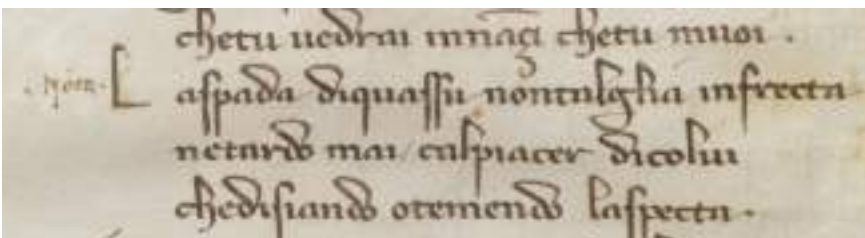 chetu uedrai innāçi chetu muoi .
L aspada diquassu nōntaglia infrecta
netardo mai calpiacer dicolui
chedisiando otemendo laspecta .